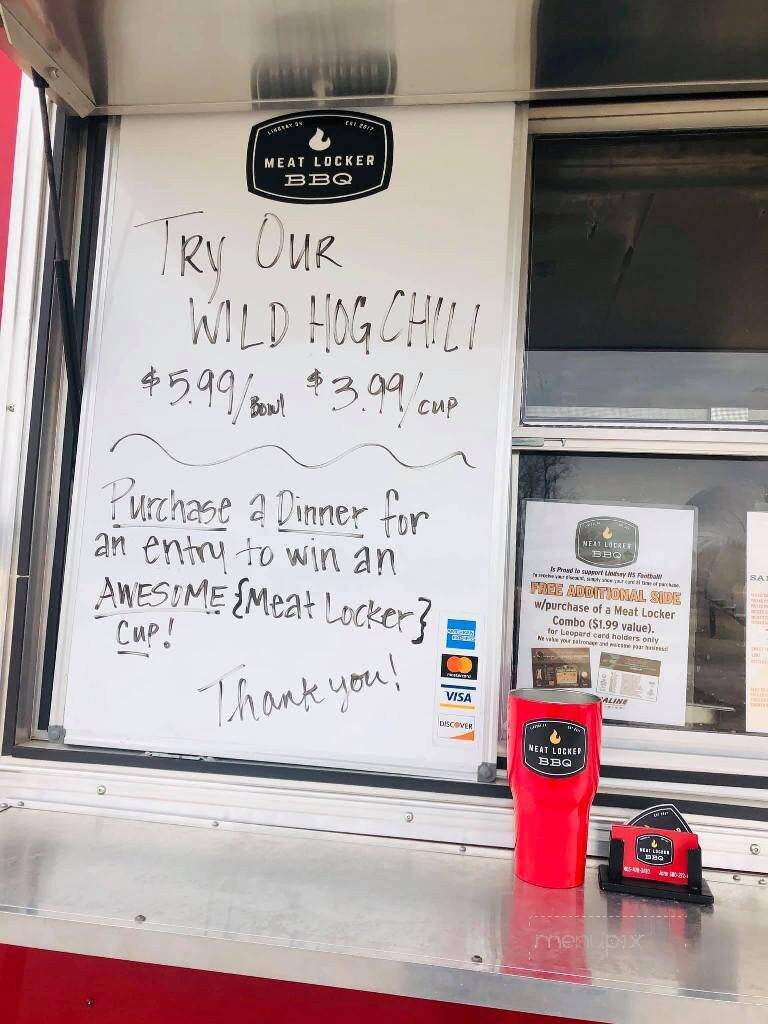 LINDSAY, OK EST 2017
MEAT LOCKER
BBQ
TRY OUR
WILD HOG CHILI
$5.99/BOWL $3.99/CUP
Purchase a Dinner for
an entry to win an
AWESOME {Meat Locker}
Cup!
Thank you!
AMERICAN EXPRESS
mastercard
VISA
DISCOVER
MEAT LOCKER
BBQ
Is Proud to support Lindsay HS Football!
To receive your discount, simply show your card at time of purchase.
FREE ADDITIONAL SIDE
w/purchase of a Meat Locker
Combo ($1.99 value).
for Leopard card holders only
We value your patronage and welcome your business!
MEAT LOCKER
BBQ
MEAT LOCKER
BBQ
menupix